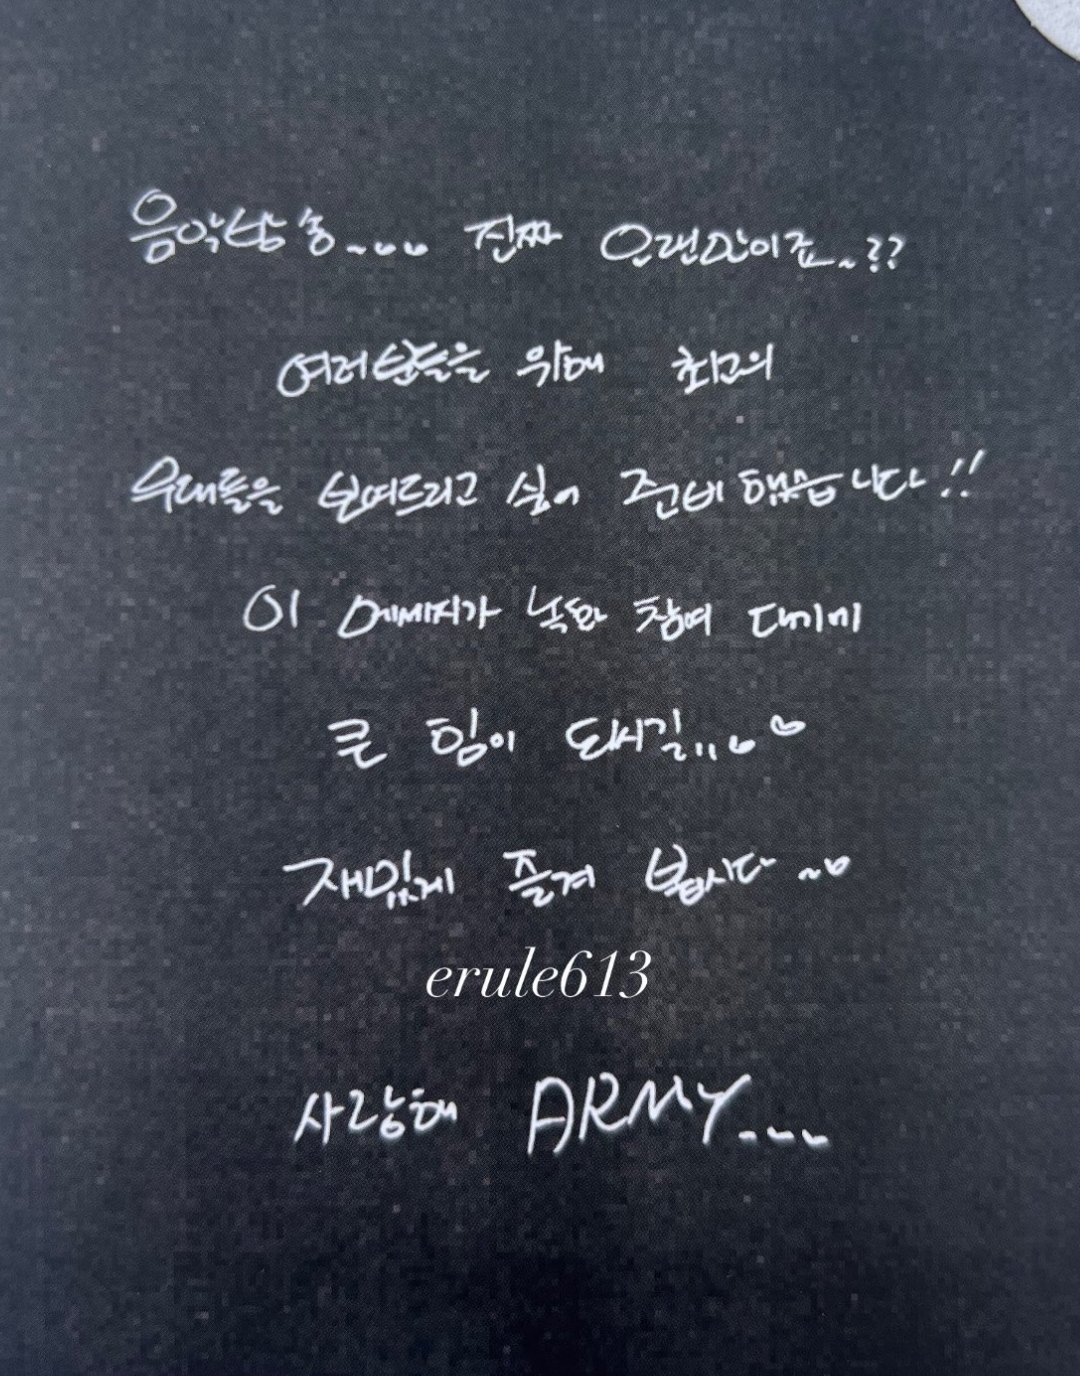 음악방송... 진짜 오랜만이죠..??
여러분들을 위해 최고의
무대들을 보여드리고 싶어 준비했습니다!!
이 메세지가 녹화 참여 대기에
큰 힘이 되시길,,..♡
재밌게 즐겨 봅시다~♡
erule613
사랑해 ARMY...